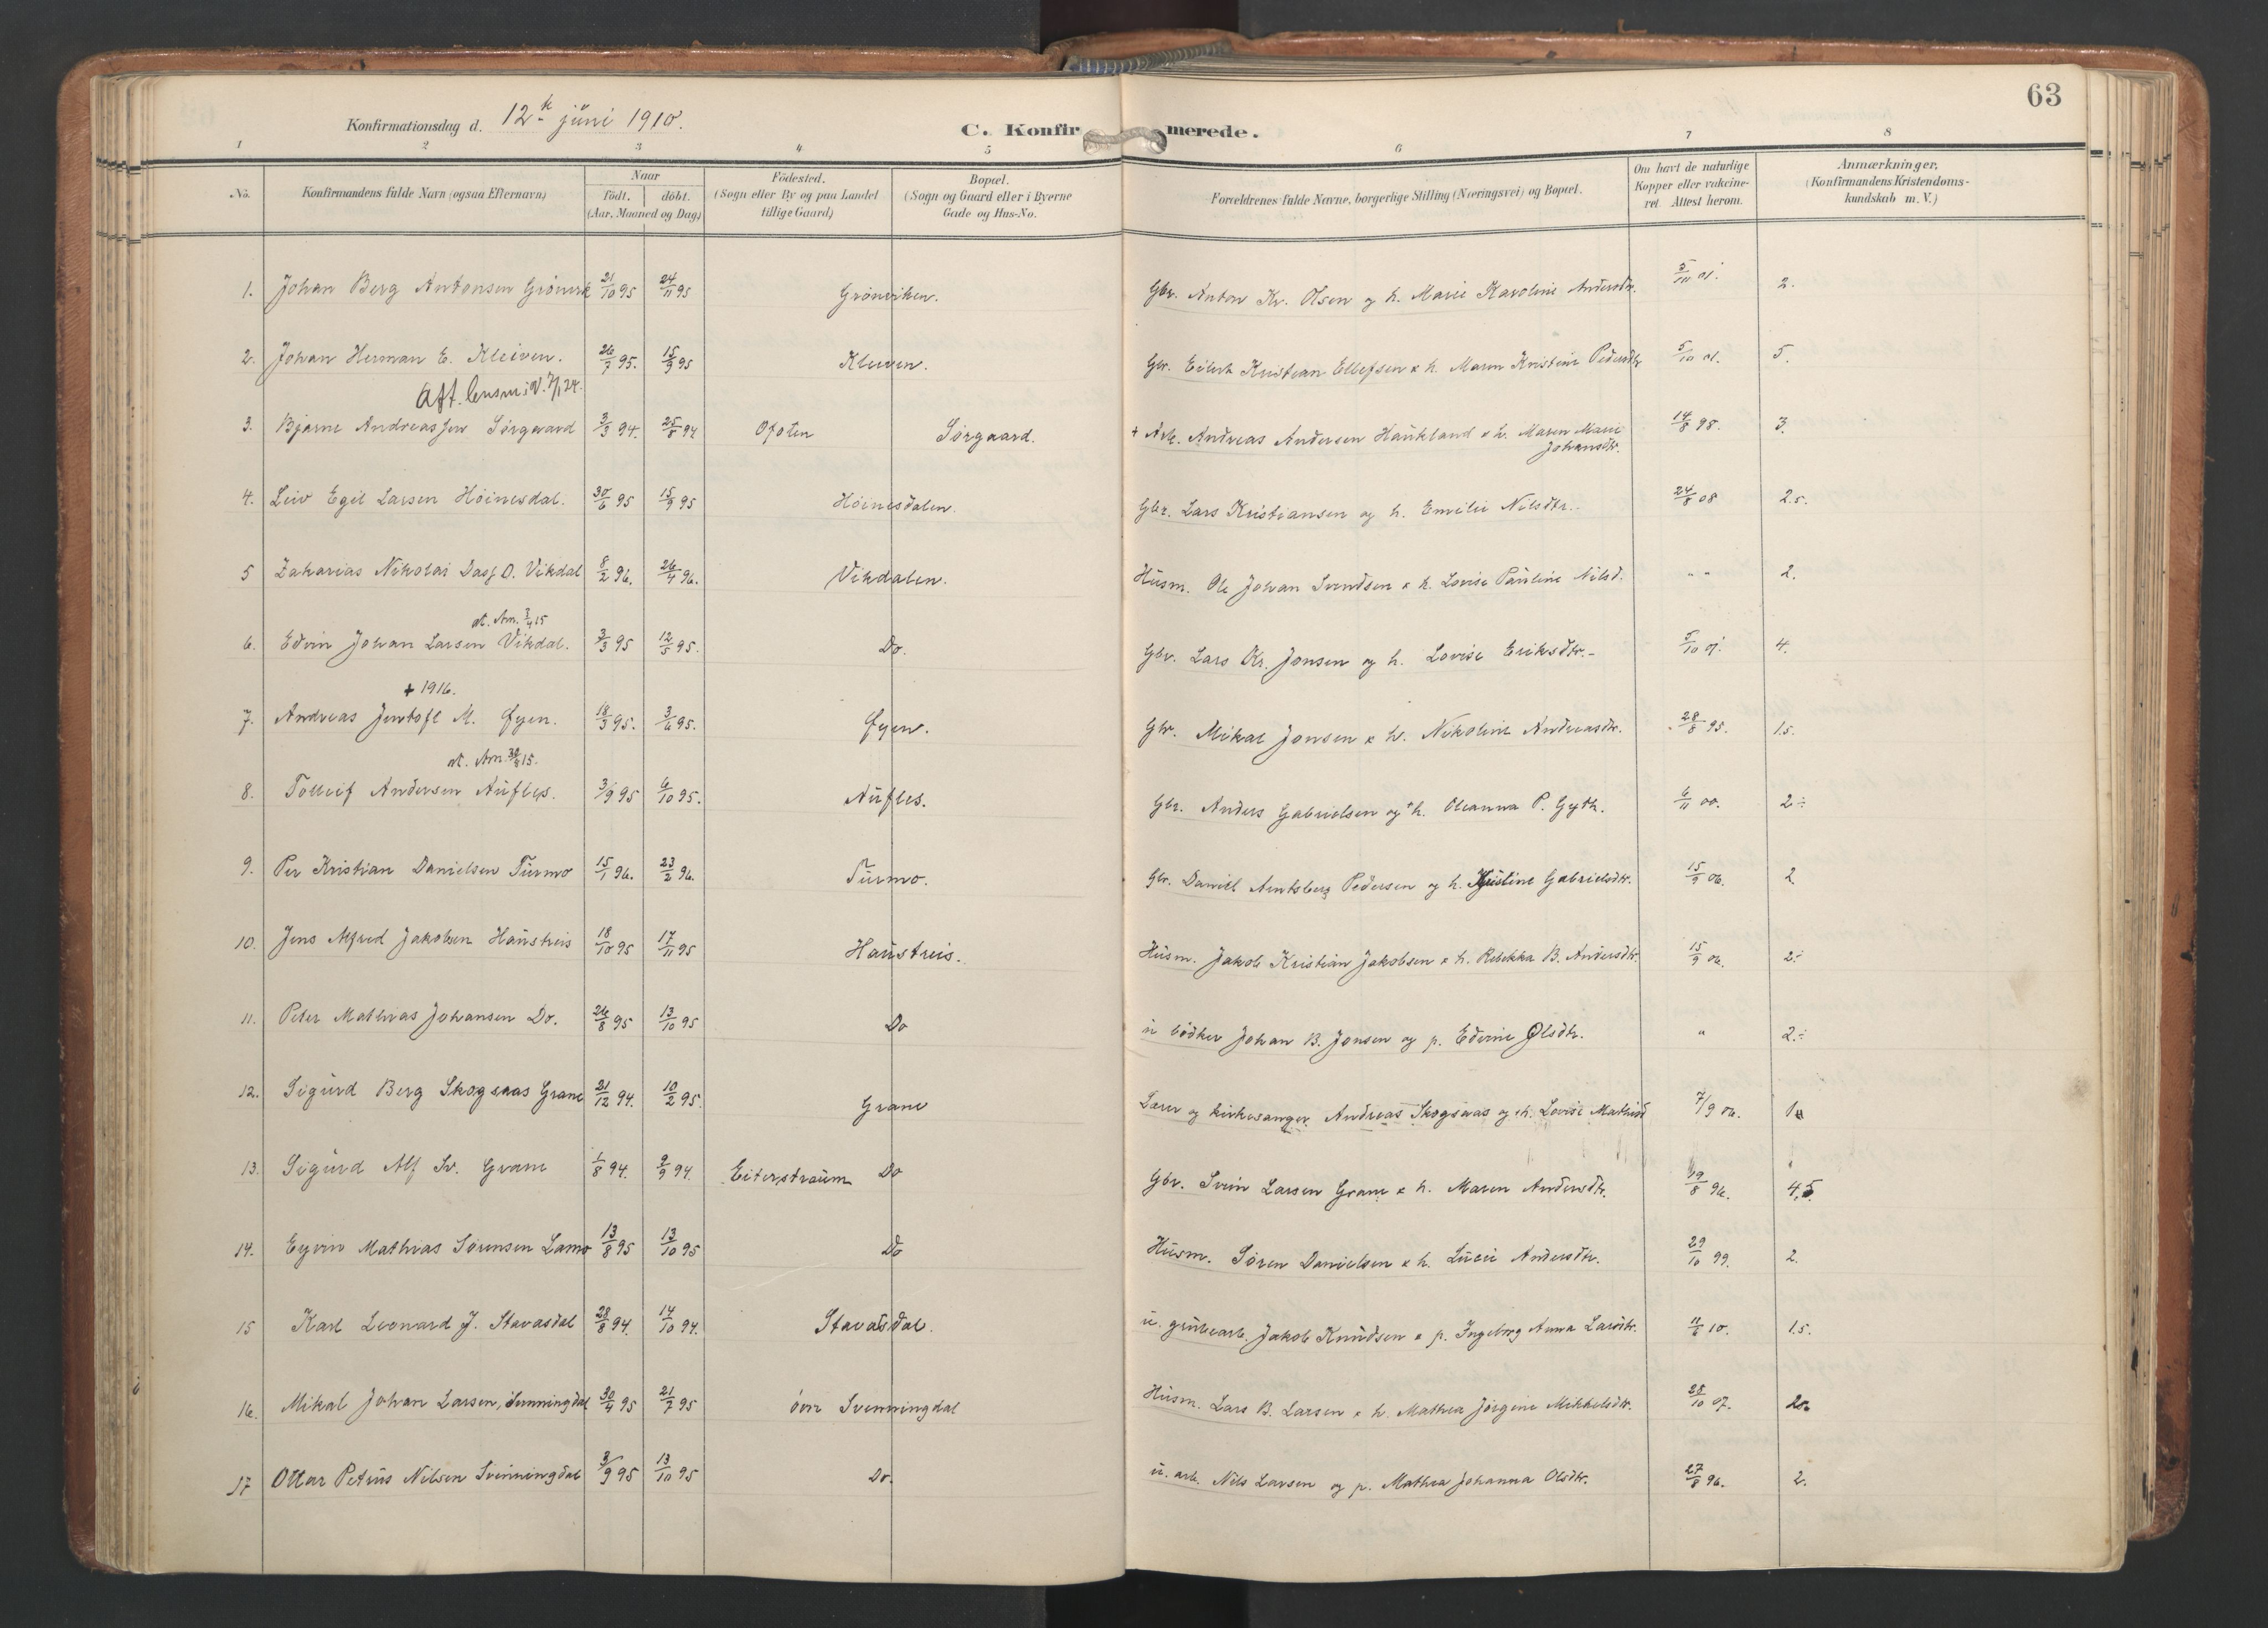 63
Konfirmationsdag d. 12te juni 1910.
C. Konfirmerede.
1 2 3 4 5 6 7 8
No. Konfirmandens fulde Navn (ogsaa Efternavn) Naar født. døbt. (Aar, Maaned og Dag) Fødested. (Sogn eller By og paa Landet tillige Gaard) Bopæl. (Sogn og Gaard eller i Byerne Gade og Hus-No. Forældrenes fulde Navne, borgerlige Stilling (Næringsvei) og Bopæl. Om havt de naturlige Kopper eller vakcineret. Attest herom. Anmærkninger, (Konfirmandens Kristendomskundskab m. V.)
1. Johan Berg Antonsen Grönvik 21/10 95 24/11 95 Grönviken. Gbr. Anton Kr. Olsen og h. Marie Karoline Andersdtr. 2.
2. Johan Herman E. Kleiven. 26/7 95. 15/9 95 Kleiven. Gbr. Eilert Kristian Ellefsen & h. Maren Kristine Pedersdtr 5/10 01. 5.
Att. 7/1 24.
3. Bjarne Andreassen Sörgaard 3/3 94. 25/8 94 Ofoten Sörgaard. + Arb. Andreas Andersen Haukland & h. Maren Marie Johansdtr. 14/8 98. 3.
4. Leiv Egil Larsen Höinesdal. 30/6 95 15/9 95 Höinesdalen. Gbr. Lars Kristiansen og h. Emilie Nilsdtr. 24/8 08 2.5.
5 Zakarias Nikolai Dasj O. Vikdal 8/2 96. 26/4 96. Vikdalen. Husm. Ole Johan Svendsen & h. Lovise Pauline Nilsd. " " 2.
at. Am. 3/4 15
6. Edvin Johan Larsen Vikdal. 3/3 95 12/5 95. Do. Gbr. Lars Kr. Jonsen og h. Lovise Eriksdtr. 5/10 07. 4.
+ 1916.
7. Andreas Jentoft M. Öyen. 18/3 95. 3/6 95. Öyen. Gbr. Mikal Jonsen & h. Nikoline Andreasdtr. 28/8 95. 1.5.
at. Am. 15.
8. Tolleif Andersen Aufles. 3/9 95 6/10 95. Aufles. Gbr. Anders Gabrielsen og + h. Oleanna P. Gyth. 6/11 00. 2÷
9. Per Kristian Danielsen Turmo 15/1 96. 23/2 96. Turmo. Gbr. Daniel Arntsberg Pedersen og h. Kristine Gabrielsdtr. 15/9 06. 2.
10. Jens Alfred Jakobsen Haustreis 18/10 95 17/11 95 Haustreis. Husm. Jakob Kristian Jakobsen & h. Rebekka B. Andersdtr. 15/9 06. 2÷
11. Peter Mathias Johansen Do. 26/8 95 13/10 95 Do u bödker Johan B. Jonsen og p. Edvine Olsdtr. " 2.÷
12. Sigurd Berg Skogsaas Grane 21/12 94. 10/2 95. Grane Lærer og kirkesanger Andreas Skogsaas og h. Lovise Mathisd 7/9 06.
13. Sigurd Alf Sv. Grane 1/8 94. 9/9 94. Eiterstraum Do Gbr. Svein Larsen Grane & h. Maren Andersdtr. 96. 4,5.
14. Eyvin Mathias Sörensen Lamo 13/8 95 13/10 95 Do Husm. Sören Danielsen & h. Lucie Andersdtr. 29/10 99. 2.
15 Karl Leonard J. Stavasdal 28/8 94. 14/10 94. Stavasdal. u. grubearb. Jakob Knudsen & p. Ingeborg Anna Larsdtr. 11/6 10. 1.5.
16. Mikal Johan Larsen, Svenningdal 30/4 95 21/7 95 övre Svenningdal Husm. Lars B. Larsen & h. Mathea Jörgine Mikkelsdtr. 28/10 07.
17 Ottar Petrus Nilsen Svenningdal 3/9 95 13/10 95 Do. u. arb. Nils Larsen og p. Mathea Johanna Olsdtr. 27/8 96. 2.